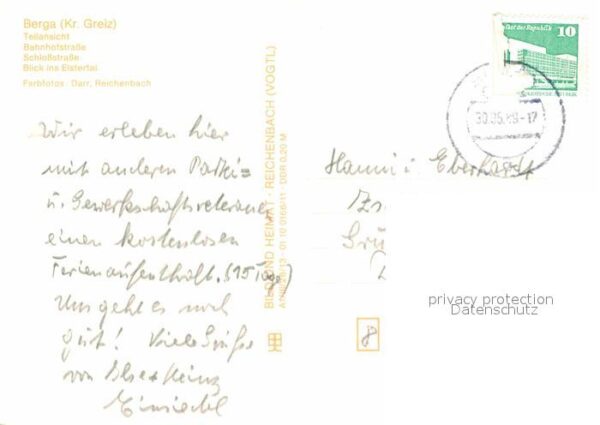 Berga (Kr. Greiz)
Teilansicht
Bahnhofstraße
Schloßstraße
Blick ins Elstertal
Farbfotos: Darr, Reichenbach
Wir erleben hier
mit anderen Partei=
u. Gewerkschaftsveteranen
einen kostenlosen
Ferienaufenthalt. (15 Tage)
Uns geht es noch
gut! Viele Grüße
von Heinz
BILD UND HEIMAT · REICHENBACH (VOGTL)
01 10 0166/11 · DDR 0,20 M
Palast der Republik
10
30.05.89-17
Hanni u. Eberhardt
privacy protection
Datenschutz
8